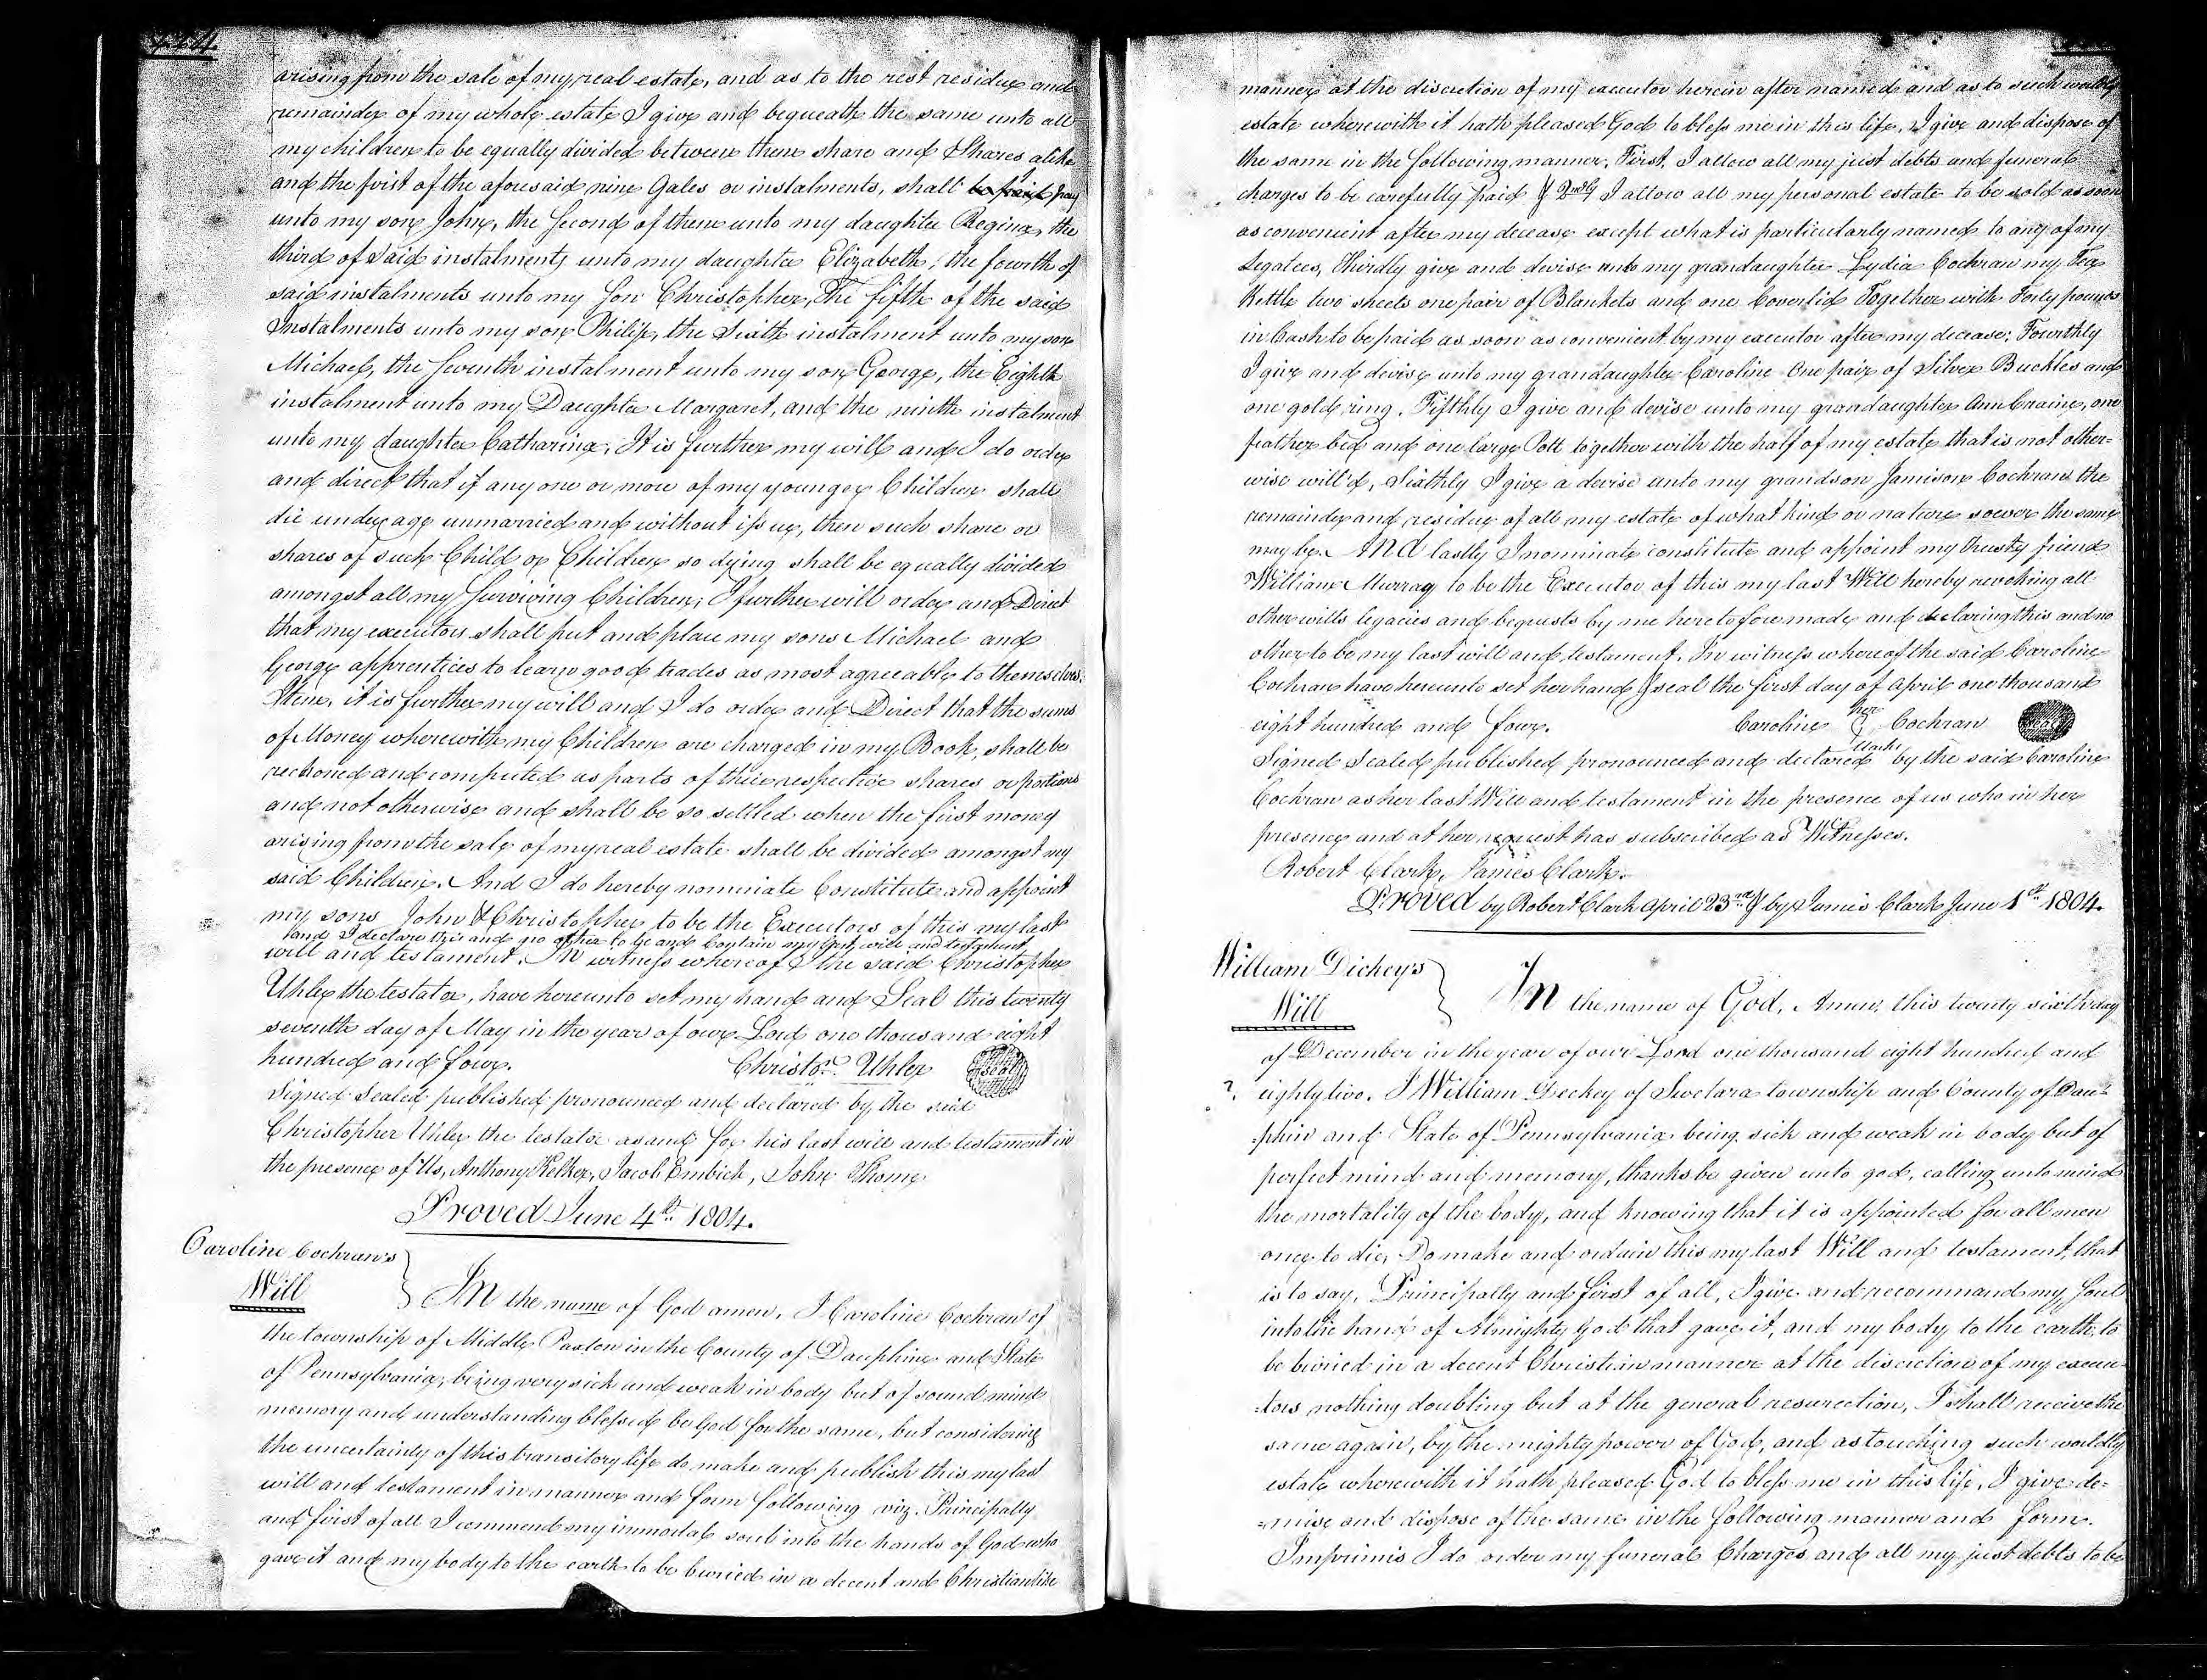 444
arising from the sale of my real estate, and as to the rest residue and
remainder of my whole estate I give and bequeath the same unto all
my children to be equally divided between them share and Shares alike
and the first of the aforesaid nine Gales or instalments, shall be paid pay
unto my son John, the Second of them unto my daughter Regina, the
third of said instalments unto my daughter Elizabeth, the fourth of
said instalments unto my Son Christopher, The fifth of the said
Instalments unto my son Philip, the Sixth instalment unto my son
Michael, the Seventh instalment unto my son George, the Eighth
instalment unto my Daughter Margaret, and the ninth instalment
unto my daughter Catharina, It is further my will and I do order
and direct that if any one or more of my younger Children shall
die under age unmarried and without issue, then such share or
shares of such Child or Children so dying shall be equally divided
amongst all my Surviving Children; I further will order and Direct
that my executors shall put and place my sons Michael and
George apprentices to learn good trades as most agreeable to themselves.
Item, it is further my will and I do order and Direct that the sums
of Money wherewith my Children are charged in my Book, shall be
reckoned and computed as parts of their respective shares or portions
and not otherwise and shall be so settled when the first money
arising from the sale of my real estate shall be divided amongst my
said Children. And I do hereby nominate Constitute and appoint
my sons John & Christopher to be the Executors of this my last
and I declare this and no other to be and Contain my last will and testament
will and testament. In witness whereof I the said Christopher
Uhler the testator, have hereunto set my hand and Seal this twenty
seventh day of May in the year of our Lord one thousand eight
hundred and four. Christo.r Uhler seal
Signed Sealed published pronounced and declared by the said
Christopher Uhler the testator as and for his last will and testament in
the presence of Us, Anthony Kelker, Jacob Embich, John Thome
Proved June 4th 1804.
Caroline Cochran's
Will
In the name of God amen, I Caroline Cochran of
the township of Middle Paxton in the County of Dauphin and State
of Pennsylvania, being very sick and weak in body but of sound mind
memory and understanding blessed be God for the same, but considering
the uncertainty of this transitory life do make and publish this my last
will and testament in manner and form following viz. Principally
and first of all I commend my immortal soul into the hands of God who
gave it and my body to the earth to be buried in a decent and Christianlike
manner at the discretion of my executor herein after named and as to such worldly
estate wherewith it hath pleased God to bless me in this life, I give and dispose of
the same in the following manner, First, I allow all my just debts and funeral
charges to be carefully paid & 2ndly I allow all my personal estate to be sold as soon
as convenient after my decease except what is particularly named to any of my
Legatees, Thirdly give and devise unto my grandaughter Lydia Cochran my Tea
Kettle two sheets one pair of Blankets and one Coverlid Together with Forty pounds
in Cash to be paid as soon as convenient by my executor after my decease; Fourthly
I give and devise unto my grandaughter Caroline One pair of Silver Buckles and
one gold ring. Fifthly I give and devise unto my grandaughter Ann Craine, one
feather bed and one large Pott together with the half of my estate that is not other=
wise will'd, Sixthly I give a devise unto my grandson Jamison Cochran the
remainder and residue of all my estate of what kind or nature soever the same
may be. And lastly I nominate constitute and appoint my trusty friend
William Murray to be the Executor of this my last Will hereby revoking all
other wills legacies and bequests by me heretofore made and declaring this and no
other to be my last will and testament. In witness whereof the said Caroline
Cochran have hereunto set her hand & seal the first day of April one thousand
eight hundred and four. Caroline her mark Cochran seal
Signed Sealed published pronounced and declared by the said Caroline
Cochran as her last Will and testament in the presence of us who in her
presence and at her request has subscribed as Witnesses.
Robert Clark, James Clark.
Proved by Robert Clark April 23rd & by James Clark June 1st 1804.
William Dickey's
Will
In the name of God, Amen, this twenty sixth day
of December in the year of our Lord one thousand eight hundred and
? eighty two. I William Dickey of Swetara township and County of Dau=
phin and State of Pennsylvania being sick and weak in body but of
perfect mind and memory, thanks be given unto god, calling unto mind
the mortality of the body, and knowing that it is appointed for all men
once to die, Do make and ordain this my last Will and testament, that
is to say, Principally and first of all, I give and recommand my Soul
into the hand of Almighty God that gave it, and my body to the earth, to
be buried in a decent Christian manner at the discretion of my execu=
=tors nothing doubting but at the general resurection, I shall receive the
same again, by the mighty power of God, and as touching such worldly
estate wherewith it hath pleased God to bless me in this life, I give de=
=mise and dispose of the same in the following manner and form.
Imprimis I do order my funeral Charges and all my just debts to be